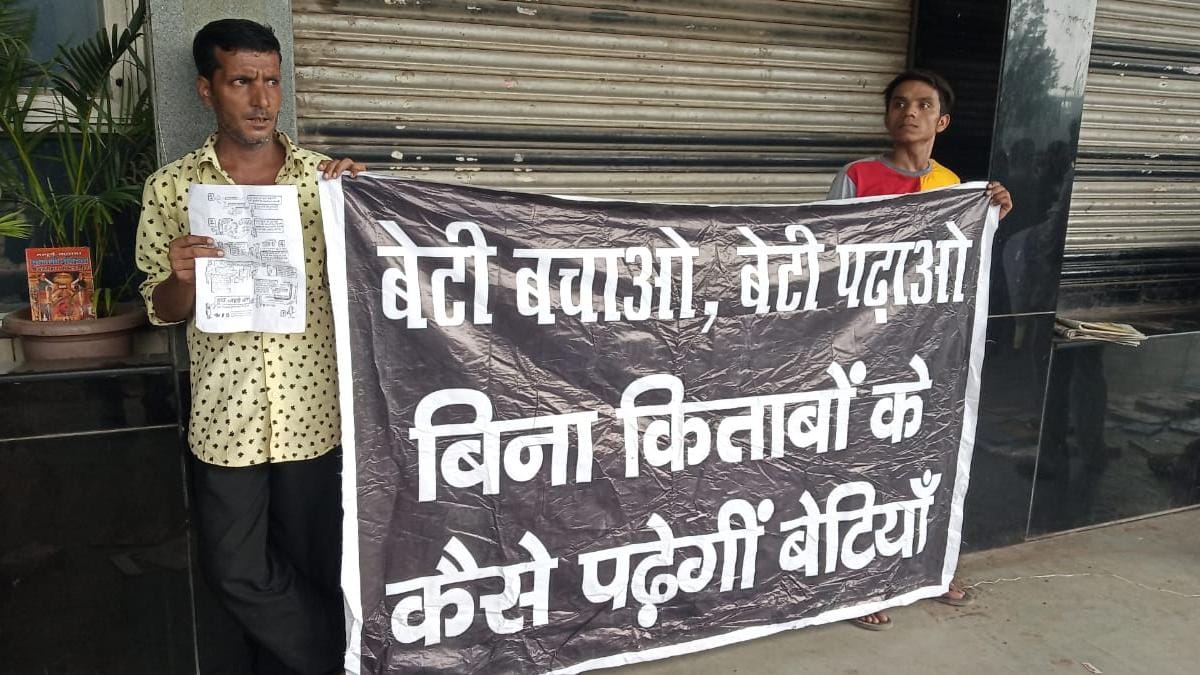 बेटी बचाओ, बेटी पढ़ाओ
बिना किताबों के
कैसे पढ़ेगीं बेटियाँ